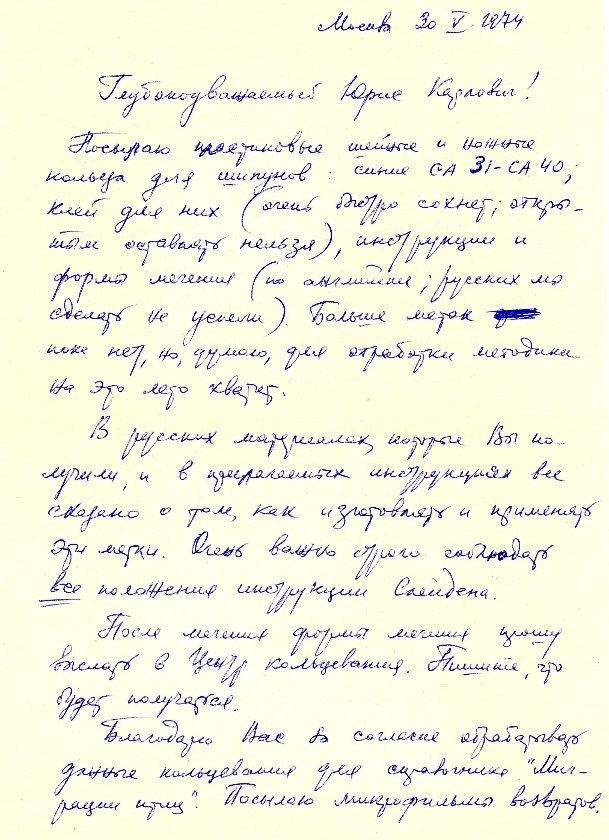 Москва 30 V. 1974
Глубокоуважаемый Юрис Карлович!
Посылаю пластиковые шейные и ножные
кольца для шипунов: синие СА 31-СА 40;
клей для них (очень быстро сохнет; откры-
тым оставлять нельзя), инструкции и
формы мечения (по английски; русских мы
сделать не успели). Больше меток
пока нет, но, думаю, для отработки методики
на это лето хватит.
В русских материалах, которые Вы по-
лучили, и в прилагаемых инструкциях все
сказано о том, как изготовлять и применять
эти метки. Очень важно строго соблюдать
все положения инструкции Слейдена.
После мечения формы мечения прошу
выслать в Центр кольцевания. Пишите, что
будет получаться.
Благодарю Вас за согласие обрабатывать
данные кольцевания для справочника "Миг-
рации птиц". Посылаю микрофильмы возвратов.